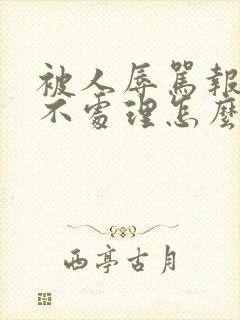 被人辱罵報
不處理怎麼
西亭古月